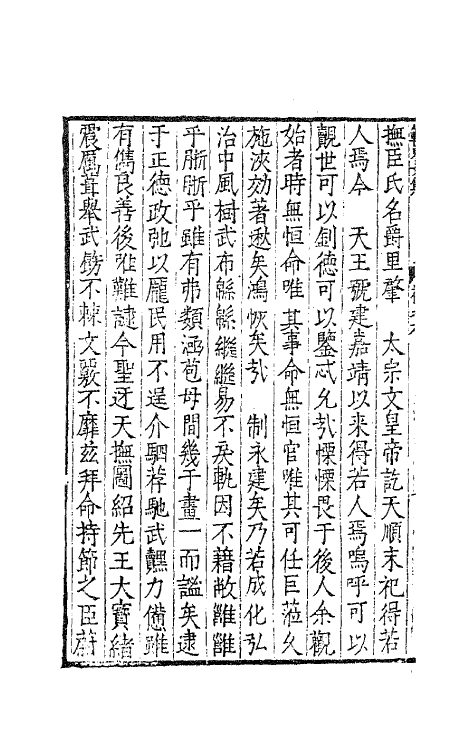 撫臣氏名爵里肇　太宗文皇帝訖天順末祀得若
人焉今　天王號建嘉靖以來得若人焉嗚呼可以
觀世可以劊德可以鑒忒允哉慄慄畏于後人余觀
始者時無恒命唯其事命無恒官唯其可任巨蒞久
施浹効著遬矣鴻恢矣哉　制永建矣乃若成化弘
治中風樹武布緜緜繼繼易不戾軌因不藉敝雝雝
乎断断乎雖有弗類涵苞毋間幾于畫一而謐矣逮
于正德政弛以厖民用不逞介駟荐馳武虣力備雖
有儁良善後惟難諱今聖迓天撫圖紹先王大寶緒
震厲葺舉武鎊不棘文覈不靡玆拜命持節之臣蔚